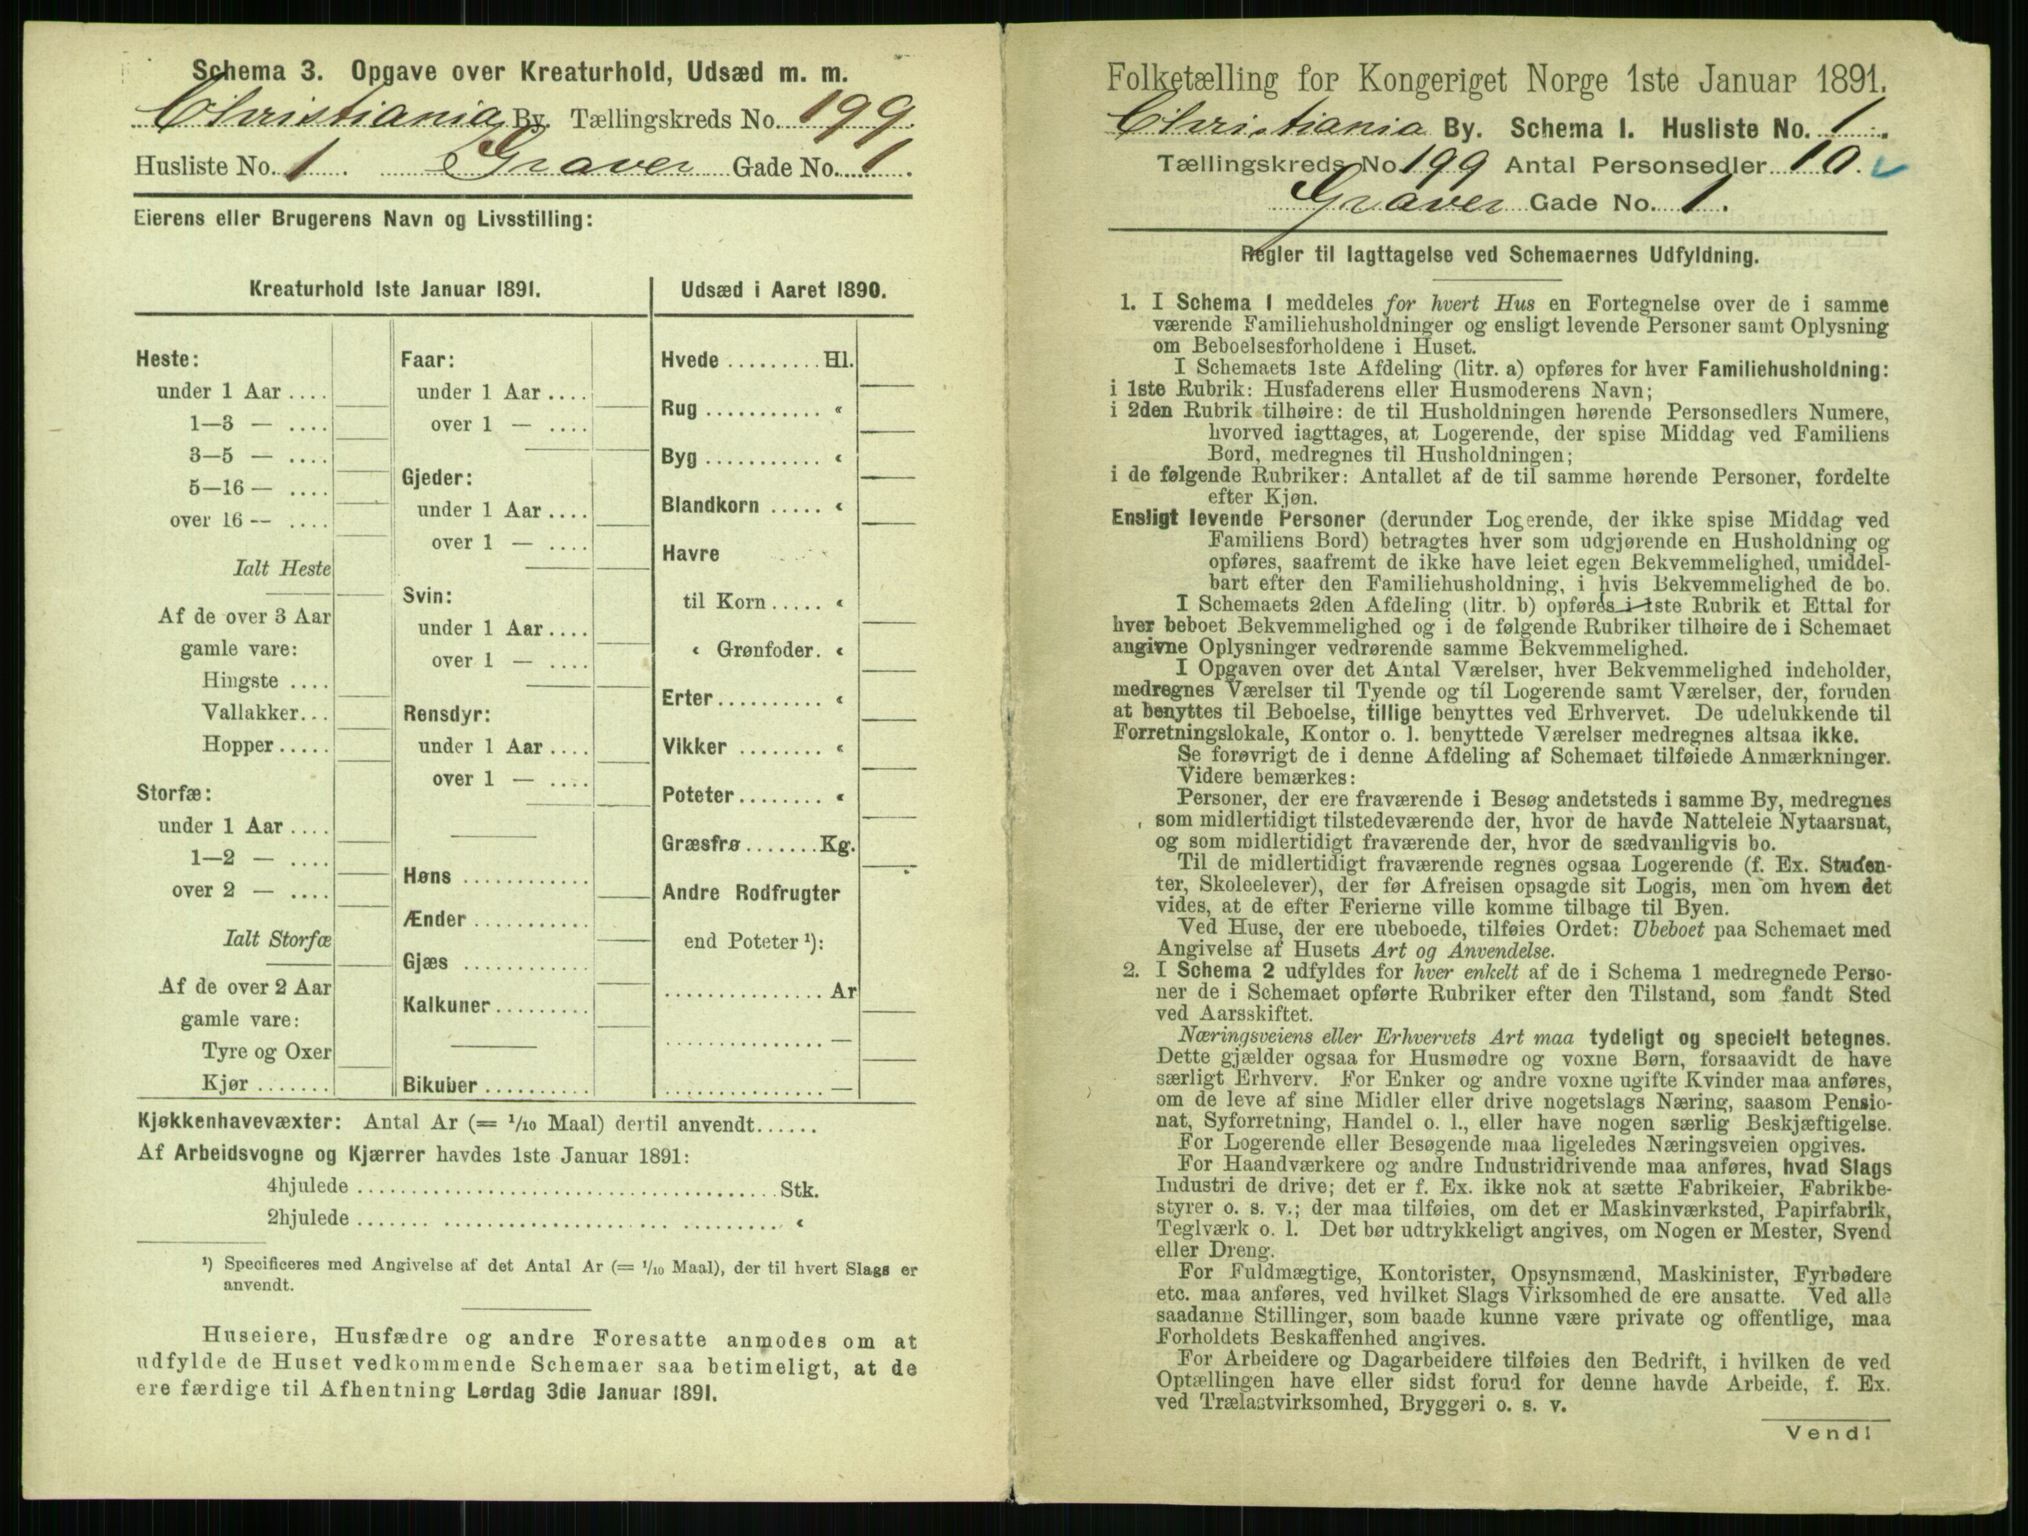 Schema 3. Opgave over Kreaturhold, Udsæd m. m.
Christiania By. Tællingskreds No. 199.
Husliste No. 1. Graver Gade No. 1.
Eierens eller Brugerens Navn og Livsstilling:
Kreaturhold 1ste Januar 1891.
Heste:
under 1 Aar ....
1—3 — ....
3—5 — ....
5—16 — ....
over 16 — ....
Ialt Heste
Af de over 3 Aar
gamle vare:
Hingste ....
Vallakker...
Hopper .....
Storfæ:
under 1 Aar ....
1—2 — ....
over 2 — ....
Ialt Storfæ
Af de over 2 Aar
gamle vare:
Tyre og Oxer
Kjør .......
Faar:
under 1 Aar ....
over 1 — ....
Gjeder:
under 1 Aar ....
over 1 — ....
Svin:
under 1 Aar ....
over 1 — ....
Rensdyr:
under 1 Aar ....
over 1 — ....
Høns ............
Ænder ...........
Gjæs ............
Kalkuner.........
Bikuber ..........
Udsæd i Aaret 1890.
Hvede ......... Hl.
Rug ........... «
Byg ........... «
Blandkorn ..... «
Havre
til Korn ..... «
« Grønfoder. «
Erter.......... «
Vikker ........ «
Poteter........ «
Græsfrø ....... Kg.
Andre Rodfrugter
end Poteter ¹):
............... Ar
............... —
............... —
Kjøkkenhavevæxter: Antal Ar (= 1/10 Maal) dertil anvendt......
Af Arbeidsvogne og Kjærrer havdes 1ste Januar 1891:
4hjulede ........................................ Stk.
2hjulede ........................................ «
¹) Specificeres med Angivelse af det Antal Ar (= 1/10 Maal), der til hvert Slags er
anvendt.
Huseiere, Husfædre og andre Foresatte anmodes om at
udfylde de Huset vedkommende Schemaer saa betimeligt, at de
ere færdige til Afhentning Lørdag 3die Januar 1891.
Folketælling for Kongeriget Norge 1ste Januar 1891.
Christiania By. Schema I. Husliste No. 1.
Tællingskreds No. 199 Antal Personsedler 10.
Graver Gade No. 1.
Regler til Iagttagelse ved Schemaernes Udfyldning.
1. I Schema I meddeles for hvert Hus en Fortegnelse over de i samme
værende Familiehusholdninger og ensligt levende Personer samt Oplysning
om Beboelsesforholdene i Huset.
I Schemaets 1ste Afdeling (litr. a) opføres for hver Familiehusholdning:
i 1ste Rubrik: Husfaderens eller Husmoderens Navn;
i 2den Rubrik tilhøire: de til Husholdningen hørende Personsedlers Numere,
hvorved iagttages, at Logerende, der spise Middag ved Familiens
Bord, medregnes til Husholdningen;
i de følgende Rubriker: Antallet af de til samme hørende Personer, fordelte
efter Kjøn.
Ensligt levende Personer (derunder Logerende, der ikke spise Middag ved
Familiens Bord) betragtes hver som udgjørende en Husholdning og
opføres, saafremt de ikke have leiet egen Bekvemmelighed, umiddel-
bart efter den Familiehusholdning, i hvis Bekvemmelighed de bo.
I Schemaets 2den Afdeling (litr. b) opføres i 1ste Rubrik et Ettal for
hver beboet Bekvemmelighed og i de følgende Rubriker tilhøire de i Schemaet
angivne Oplysninger vedrørende samme Bekvemmelighed.
I Opgaven over det Antal Værelser, hver Bekvemmelighed indeholder,
medregnes Værelser til Tyende og til Logerende samt Værelser, der, foruden
at benyttes til Beboelse, tillige benyttes ved Erhvervet. De udelukkende til
Forretningslokale, Kontor o. l. benyttede Værelser medregnes altsaa ikke.
Se forøvrigt de i denne Afdeling af Schemaet tilføiede Anmærkninger.
Videre bemærkes:
Personer, der ere fraværende i Besøg andetsteds i samme By, medregnes
som midlertidigt tilstedeværende der, hvor de havde Natteleie Nytaarsnat,
og som midlertidigt fraværende der, hvor de sædvanligvis bo.
Til de midlertidigt fraværende regnes ogsaa Logerende (f. Ex. Studen-
ter, Skoleelever), der før Afreisen opsagde sit Logis, men om hvem det
vides, at de efter Ferierne ville komme tilbage til Byen.
Ved Huse, der ere ubeboede, tilføies Ordet: Ubeboet paa Schemaet med
Angivelse af Husets Art og Anvendelse.
2. I Schema 2 udfyldes for hver enkelt af de i Schema 1 medregnede Perso-
ner de i Schemaet opførte Rubriker efter den Tilstand, som fandt Sted
ved Aarsskiftet.
Næringsveiens eller Erhvervets Art maa tydeligt og specielt betegnes.
Dette gjælder ogsaa for Husmødre og voxne Børn, forsaavidt de have
særligt Erhverv. For Enker og andre voxne ugifte Kvinder maa anføres,
om de leve af sine Midler eller drive nogetslags Næring, saasom Pensio-
nat, Syforretning, Handel o. l., eller have nogen særlig Beskjæftigelse.
For Logerende eller Besøgende maa ligeledes Næringsveien opgives.
For Haandværkere og andre Industridrivende maa anføres, hvad Slags
Industri de drive; det er f. Ex. ikke nok at sætte Fabrikeier, Fabrikbe-
styrer o. s. v.; der maa tilføies, om det er Maskinværksted, Papirfabrik,
Teglværk o. l. Det bør udtrykkeligt angives, om Nogen er Mester, Svend
eller Dreng.
For Fuldmægtige, Kontorister, Opsynsmænd, Maskinister, Fyrbødere
etc. maa anføres, ved hvilket Slags Virksomhed de ere ansatte. Ved alle
saadanne Stillinger, som baade kunne være private og offentlige, maa
Forholdets Beskaffenhed angives.
For Arbeidere og Dagarbeidere tilføies den Bedrift, i hvilken de ved
Optællingen have eller sidst forud for denne havde Arbeide, f. Ex.
ved Trælastvirksomhed, Bryggeri o. s. v.
Vend!